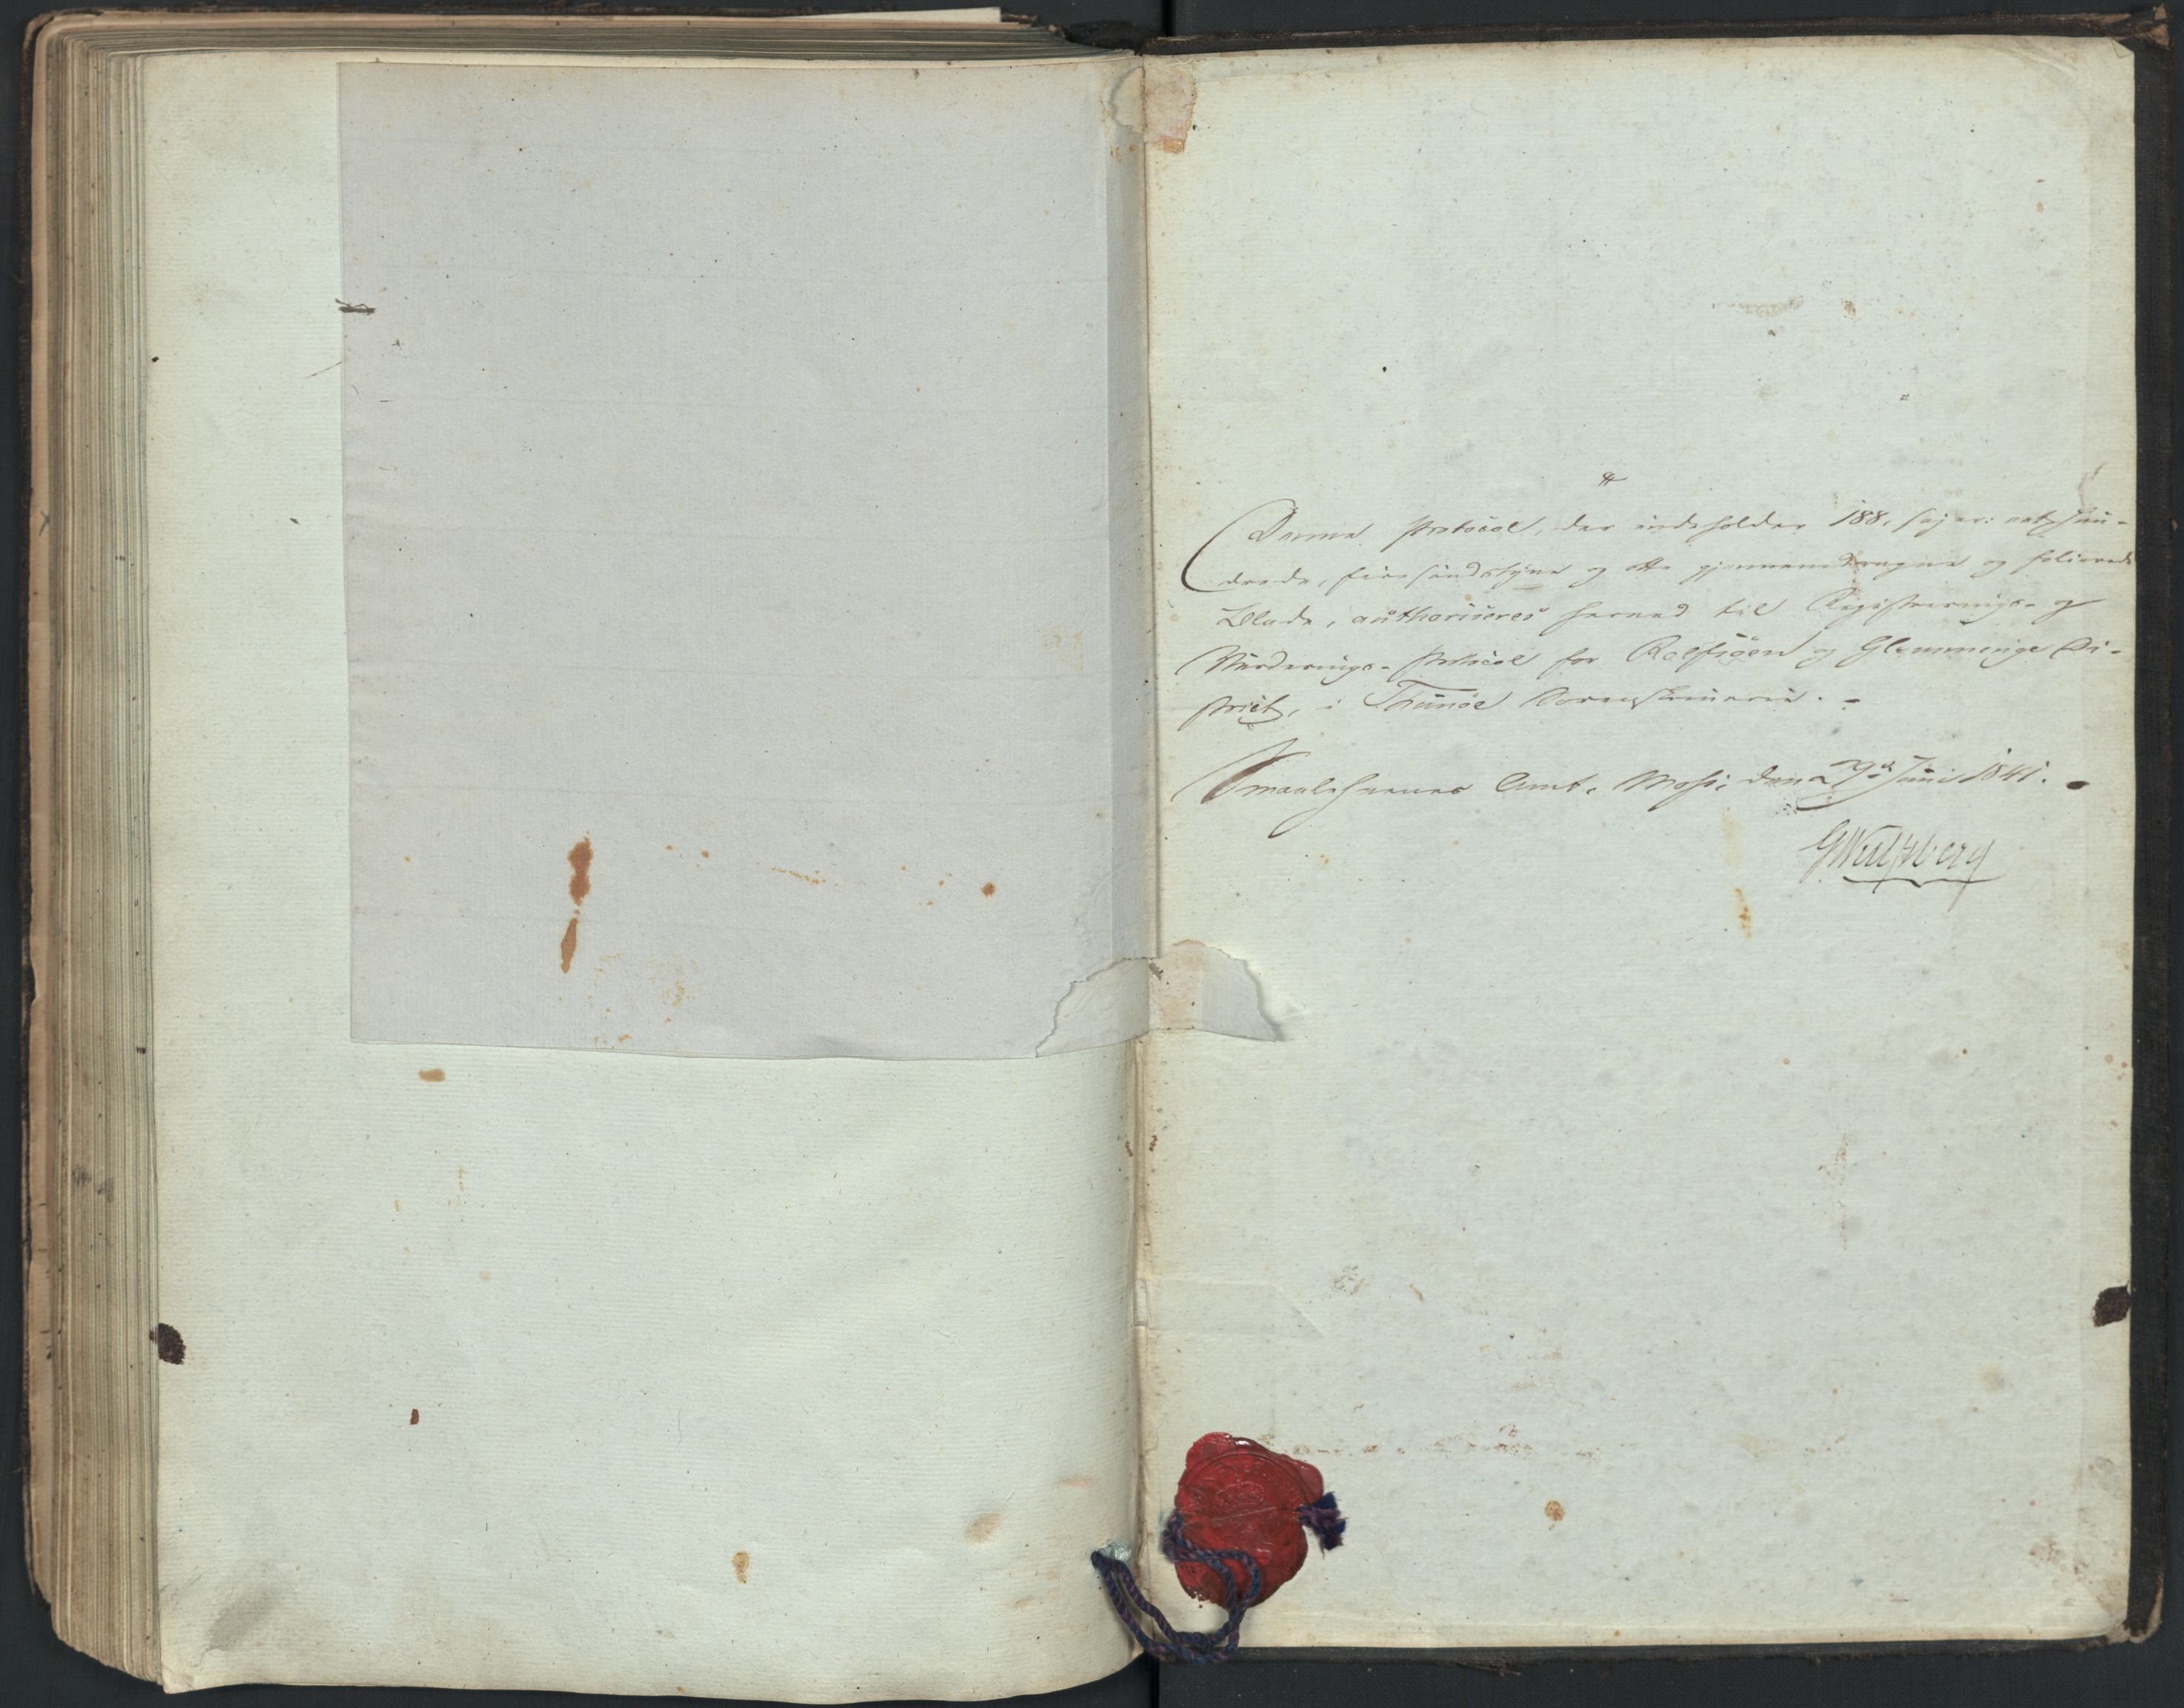 Denne Protocol, der indeholder 188, siger: eethun-
drede, firesindstyve og otte gjennemdragne og folierede
Blade, authoriseres herved til Registrerings- og
Vurderings-Protocol for Rolfsöen og Glemminge Di-
strict, i Thunöe Sorenskriverie.
Smaalehnenes Amt, Moss, den 29de Juni 1841.
GWulfsberg